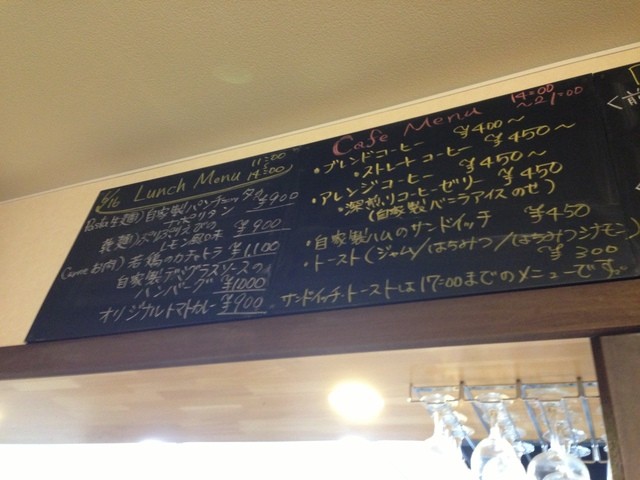 6/16 Lunch Menu 11:00〜14:00
Pasta(生麺) 自家製パンチェッタの
ナポリタン ¥900
(乾麺)
レモン風味 ¥900
Carne(お肉) 若鶏のカチャトラ ¥1,100
自家製デミグラスソースの
ハンバーグ ¥1000
オリジナルトマトカレー ¥900
Cafe Menu 14:00〜21:00
・ブレンドコーヒー ¥400〜
・ストレートコーヒー ¥450〜
・アレンジコーヒー ¥450〜
・深煎りコーヒーゼリー ¥450
(自家製バニラアイスのせ)
・自家製ハムのサンドイッチ ¥450
・トースト(ジャム/はちみつ/はちみつシナモン)
¥300
サンドイッチ・トーストは17:00までのメニューです。